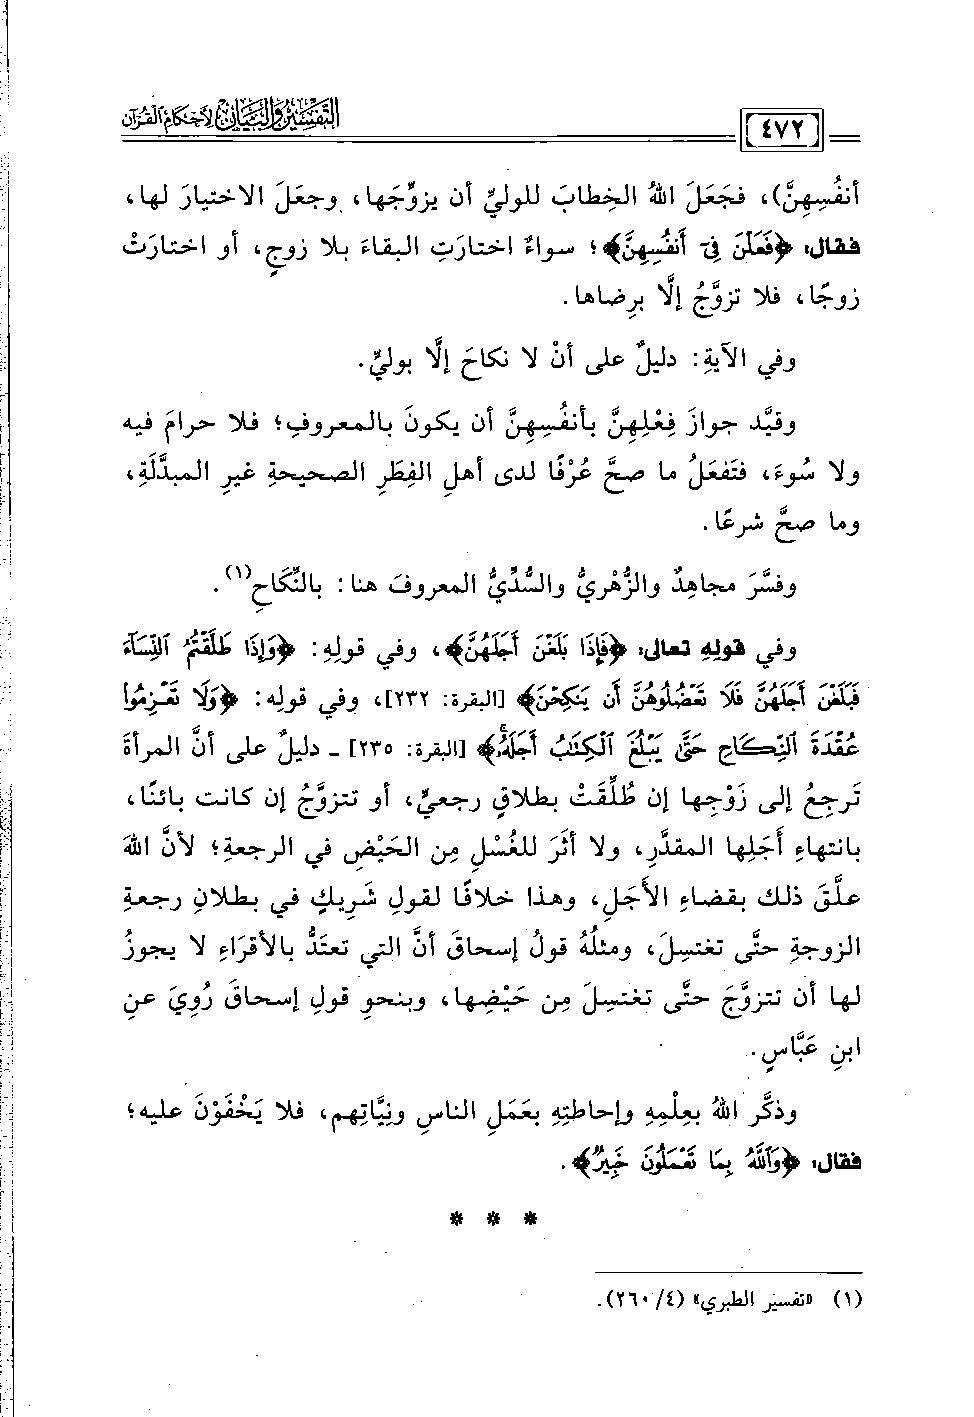 التفسير والبيان لأحكام القرآن
٤٧٢
أنفُسِهِنَّ)، فجَعَلَ اللهُ الخِطابَ للوليِّ أن يزوِّجَها، وجعَلَ الاختيارَ لها،
فقال: ﴿فَعَلْنَ فِىٓ أَنفُسِهِنَّ﴾؛ سواءٌ اختارَتِ البقاءَ بلا زوجٍ، أو اختارَتْ
زوجًا، فلا تزوَّجُ إلَّا برِضاها.
وفي الآيةِ: دليلٌ على أنْ لا نكاحَ إلَّا بوليٍّ.
وقيَّد جوازَ فِعْلِهِنَّ بأنفُسِهِنَّ أن يكونَ بالمعروفِ؛ فلا حرامَ فيه
ولا سُوءَ، فتَفعَلُ ما صحَّ عُرْفًا لدى أهلِ الفِطَرِ الصحيحةِ غيرِ المبدَّلَةِ،
وما صحَّ شرعًا.
وفسَّرَ مجاهِدٌ والزُّهْريُّ والسُّدِّيُّ المعروفَ هنا: بالنِّكَاحِ(١).
وفي قولِهِ تعالى: ﴿فَإِذَا بَلَغْنَ أَجَلَهُنَّ﴾، وفي قولِهِ: ﴿وَإِذَا طَلَّقْتُمُ ٱلنِّسَآءَ
فَبَلَغْنَ أَجَلَهُنَّ فَلَا تَعْضُلُوهُنَّ أَن يَنكِحْنَ﴾ [البقرة: ٢٣٢]، وفي قولِه: ﴿وَلَا تَعْزِمُوا۟
عُقْدَةَ ٱلنِّكَاحِ حَتَّىٰ يَبْلُغَ ٱلْكِتَٰبُ أَجَلَهُۥ﴾ [البقرة: ٢٣٥] ـ دليلٌ على أنَّ المرأةَ
تَرجِعُ إلى زَوْجِها إن طُلِّقَتْ بطلاقٍ رجعيٍّ، أو تتزوَّجُ إن كانت بائنًا،
بانتهاءِ أَجَلِها المقدَّرِ، ولا أثَرَ للغُسْلِ مِن الحَيْضِ في الرجعةِ؛ لأنَّ اللهَ
علَّقَ ذلك بقضاءِ الأَجَلِ، وهذا خلافًا لقولِ شَرِيكٍ في بطلانِ رجعةِ
الزوجةِ حتَّى تغتسِلَ، ومثلُهُ قولُ إسحاقَ أنَّ التي تعتَدُّ بالأقراءِ لا يجوزُ
لها أن تتزوَّجَ حتَّى تغتسِلَ مِن حَيْضِها، وبنحوِ قولِ إسحاقَ رُوِيَ عنِ
ابنِ عَبَّاسٍ.
وذكَّر اللهُ بعِلْمِهِ وإحاطتِهِ بعَمَلِ الناسِ ونِيَّاتِهم، فلا يَخْفَوْنَ عليه؛
فقال: ﴿وَٱللَّهُ بِمَا تَعْمَلُونَ خَبِيرٌ﴾.
* * *
(١) «تفسير الطبري» (٤/ ٢٦٠).